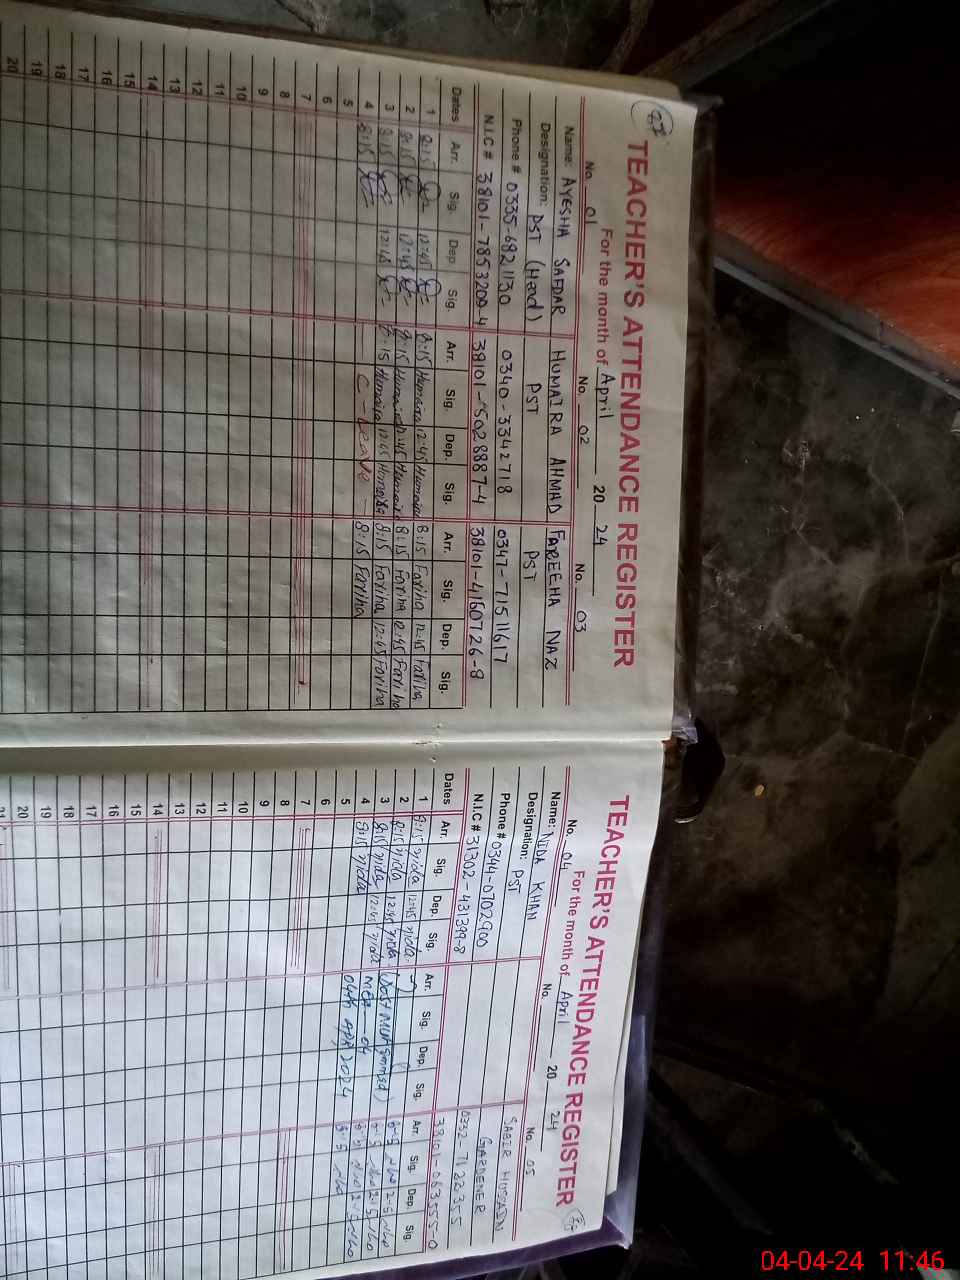 27
TEACHER'S ATTENDANCE REGISTER
For the month of April 20 24
No. 01 No. 02 No. 03
Name: AYESHA SAFDAR HUMAIRA AHMAD FAREEHA NAZ
Designation: PST (Head) PST PST
Phone # 0335-6821130 0340-3342718 0347-71511617
N.I.C # 38101-7853209-4 38101-15028887-4 38101-4160726-8
Dates Arr. Sig. Dep. Sig. Arr. Sig. Dep. Sig. Arr. Sig. Dep. Sig.
1 8:15 12:45 8:15 Humaira 12:45 Humaira 8:15 Fariha 12:45 Fariha
2 8:15 12:45 8:15 Humaira 12:45 Humaira 8:15 Fariha 12:45 Fariha
3 8:15 12:45 8:15 Humaira 12:45 Humaira 8:15 Fariha 12:45 Fariha
4 8:15 C-Leave 8:15 Fariha
5
6
7
8
9
10
11
12
13
14
15
16
17
18
19
20
TEACHER'S ATTENDANCE REGISTER
For the month of April 20 24
No. 04 No. No. 05
Name: NIDA KHAN SABIR HUSSAIN
Designation: PST GARDENER
Phone # 0344-0702900 0332-7122355
N.I.C # 31302-431399-8 38101-063555-0
Dates Arr. Sig. Dep. Sig. Arr. Sig. Dep. Sig. Arr. Sig. Dep. Sig.
1 8:15 Nida 12:45 Nida
2 8:15 Nida 12:45 Nida
3 8:15 Nida 12:45 Nida (Dost Muhammad)
4 8:15 Nida MEA-04
5 04th Apr, 2024
6
7
8
9
10
11
12
13
14
15
16
17
18
19
20
21
04-04-24 11:46